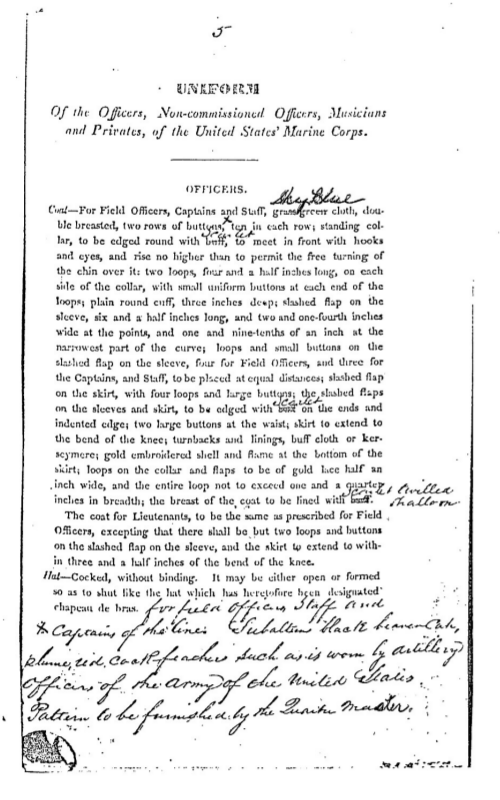 5
UNIFORM
Of the Officers, Non-commissioned Officers, Musicians
and Privates, of the United States' Marine Corps.
OFFICERS.
Sky Blue
Coat—For Field Officers, Captains and Staff, grass green cloth, dou-
ble breasted, two rows of buttons, ten in each row; standing col-
scarlet
lar, to be edged round with buff, to meet in front with hooks
and eyes, and rise no higher than to permit the free turning of
the chin over it: two loops, four and a half inches long, on each
side of the collar, with small uniform buttons at each end of the
loops; plain round cuff, three inches deep; slashed flap on the
sleeve, six and a half inches long, and two and one-fourth inches
wide at the points, and one and nine-tenths of an inch at the
narrowest part of the curve; loops and small buttons on the
slashed flap on the sleeve, four for Field Officers, and three for
the Captains, and Staff, to be placed at equal distances; slashed flap
on the skirt, with four loops and large buttons; the slashed flaps
scarlet
on the sleeves and skirt, to be edged with buff on the ends and
indented edge; two large buttons at the waist; skirt to extend to
the bend of the knee; turnbacks and linings, buff cloth or ker-
seymere; gold embroidered shell and flame at the bottom of the
skirt; loops on the collar and flaps to be of gold lace half an
inch wide, and the entire loop not to exceed one and a quarter
scarlet twilled
inches in breadth; the breast of the coat to be lined with buff.
shalloon
The coat for Lieutenants, to be the same as prescribed for Field
Officers, excepting that there shall be but two loops and buttons
on the slashed flap on the sleeve, and the skirt to extend to with-
in three and a half inches of the bend of the knee.
Hat—Cocked, without binding. It may be either open or formed
so as to shut like the hat which has heretofore been designated
chapeau de bras. for field officers Staff and
Captains of the line. Subalterns black beaver Cap,
plume, red cock feathers such as is worn by artillery
Officers of the Army of the United States.
Pattern to be furnished by the Quarter Master.